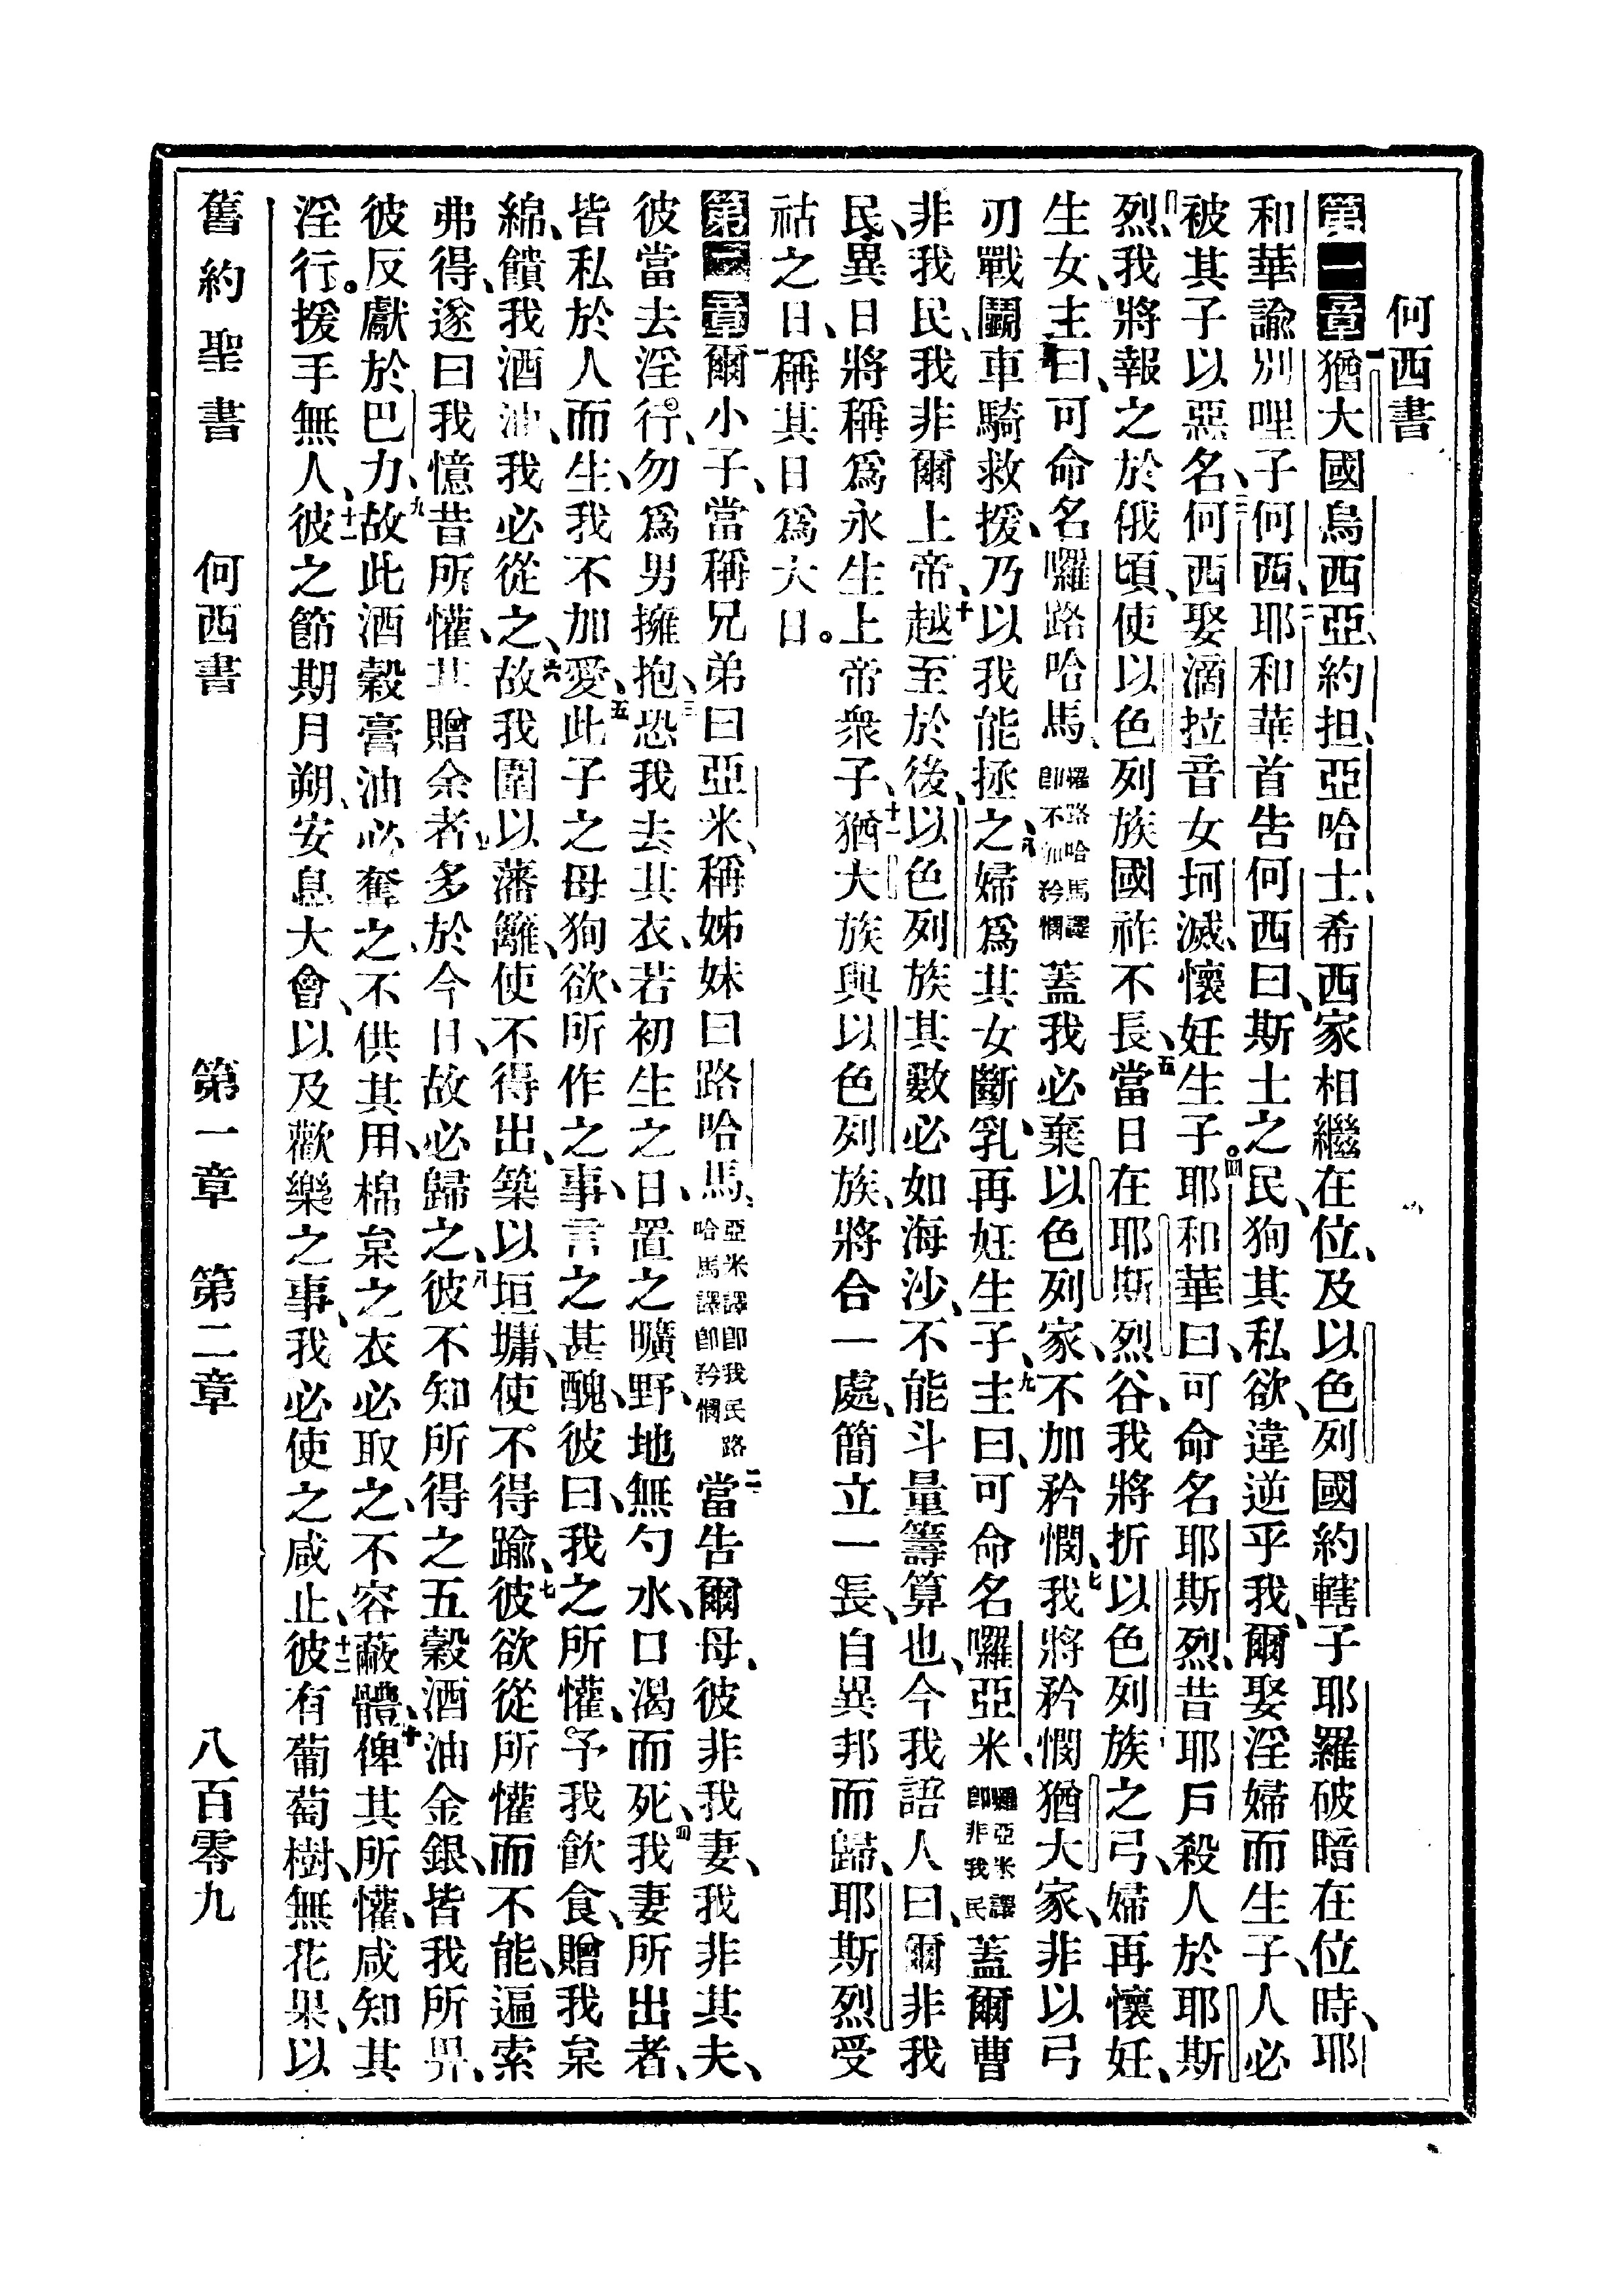 何西書
第一章一猶大國烏西亞、約担、亞哈士、希西家相繼在位、及以色列國約轄子耶羅破暗在位時、耶
和華諭別哩子何西、二耶和華首告何西曰、斯土之民、狥其私欲、違逆乎我、爾娶淫婦而生子、人必
被其子以惡名、三何西娶滴拉音女坷滅、懷妊生子。四耶和華曰、可命名耶斯烈、昔耶戶殺人於耶斯
烈、我將報之於俄頃、使以色列族國祚不長、五當日在耶斯烈谷、我將折以色列族之弓、六婦再懷妊、
生女、主曰、可命名囉路哈馬、囉路哈馬譯卽不加矜憫蓋我必棄以色列家、不加矜憫、七我將矜憫猶大家、非以弓
刃戰鬭車騎救援、乃以我能拯之、八婦爲其女斷乳、再妊生子、九主曰、可命名囉亞米、囉亞米譯卽非我民蓋爾曹
非我民、我非爾上帝、十越至於後、以色列族其數必如海沙、不能斗量籌算也、今我語人曰、爾非我
民、異日將稱爲永生上帝衆子、十一猶大族與以色列族、將合一處、簡立一長、自異邦而歸、耶斯烈受
祜之日、稱其日爲大日。
第二章一爾小子、當稱兄弟曰亞米、稱姊妹曰路哈馬、亞米譯卽我民路哈馬譯卽矜憫二當告爾母、彼非我妻、我非其夫、
彼當去淫行、勿爲男擁抱、三恐我去其衣、若初生之日、置之曠野、地無勺水、口渴而死、四我妻所出者、
皆私於人而生、我不加愛、五此子之母狥欲、所作之事、言之甚醜、彼曰、我之所懽、予我飮食、贈我枲
綿、饋我酒油、我必從之、六故我圍以藩籬、使不得出、築以垣墉、使不得踰、七彼欲從所懽而不能、遍索
弗得、遂曰我憶昔所懽、其贈余者、多於今日、故必歸之、八彼不知所得之五穀酒油金銀、皆我所畀、
彼反獻於巴力、九故此酒穀膏油必奪之、不供其用、棉枲之衣必取之、不容蔽體、十俾其所懽、咸知其
淫行。援手無人、十一彼之節期月朔、安息大會、以及歡樂之事、我必使之咸止、十二彼有葡萄樹、無花果、以
舊約聖書 何西書 第一章 第二章 八百零九